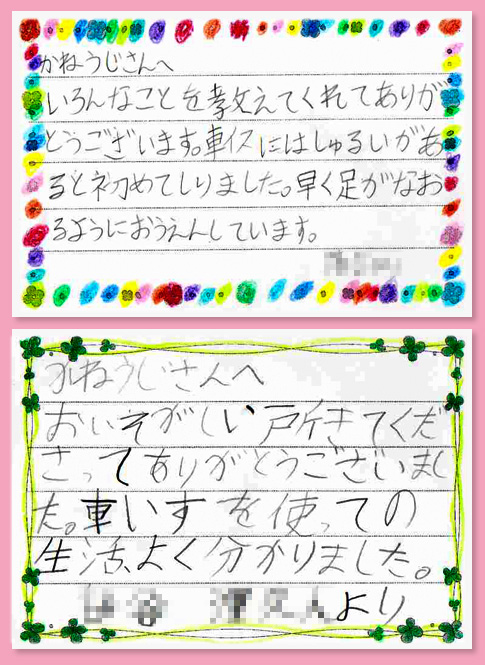 かねうじさんへ
いろんなことを教えてくれてありが
とうございます。車イスにはしゅるいがあ
ると初めてしりました。早く足がなお
るようにおうえんしています。
かねうじさんへ
おいそがしい所きてくだ
さってありがとうございまし
た。車いすを使っての
生活、よく分かりました。
より